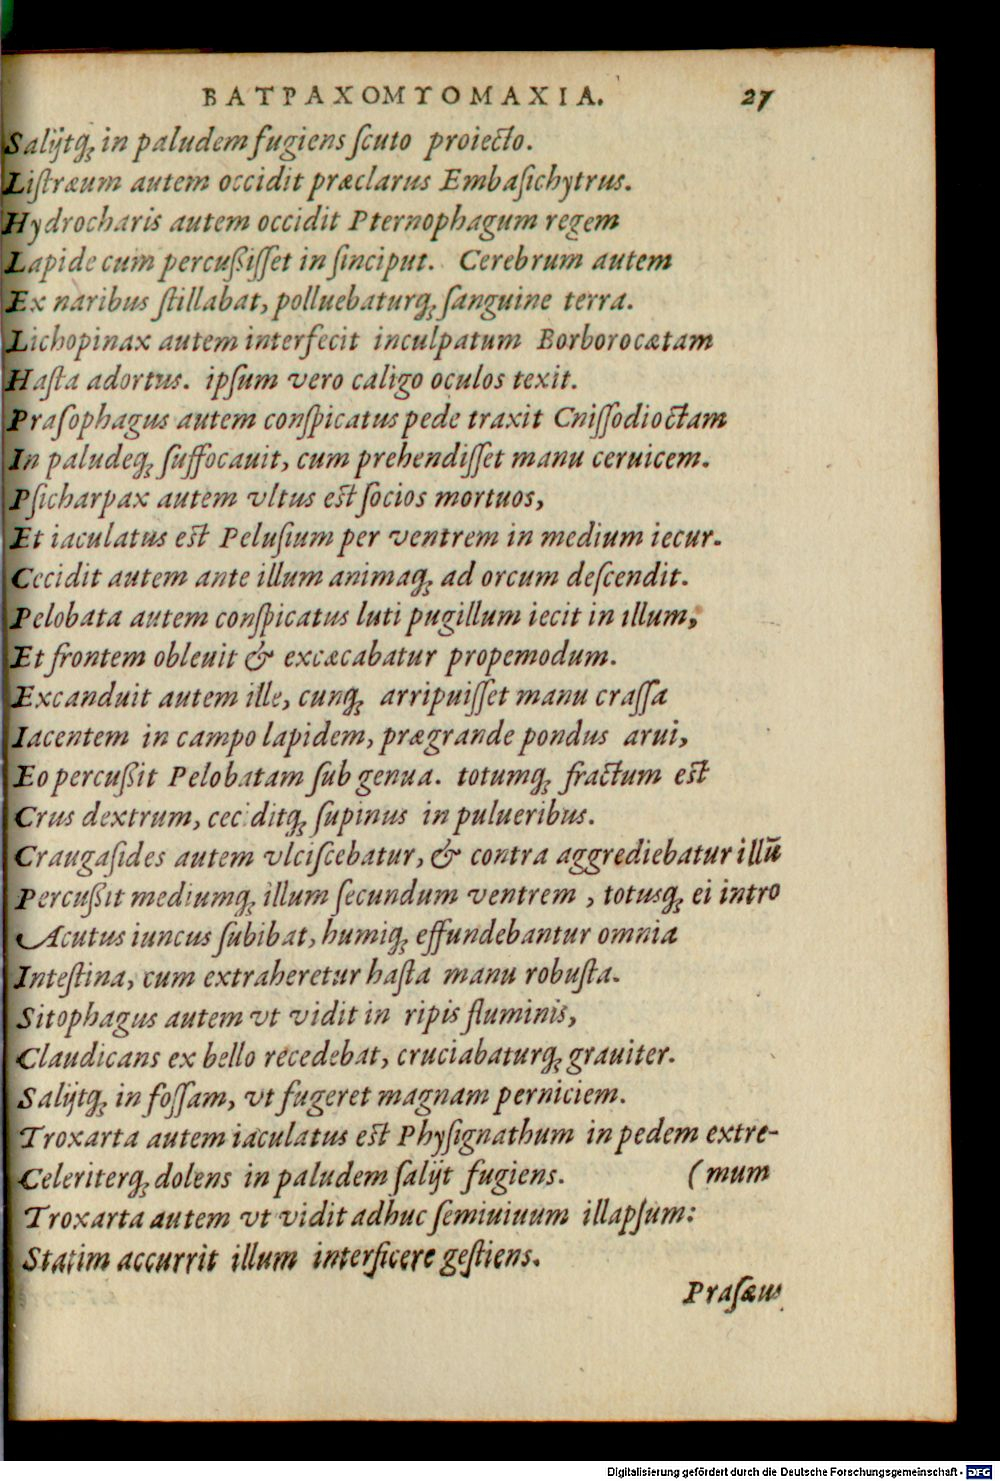 ΒΑΤΡΑΧΟΜΥΟΜΑΧΙΑ. 27
Salijtq; in paludem fugiens ſcuto proiecto.
Liſtræum autem occidit præclarus Embaſichytrus.
Hydrocharis autem occidit Pternophagum regem
Lapide cum percußiſſet in ſinciput. Cerebrum autem
Ex naribus ſtillabat, polluebaturq; ſanguine terra.
Lichopinax autem interfecit inculpatum Borborocætam
Haſta adortus. ipſum vero caligo oculos texit.
Praſophagus autem conſpicatus pede traxit Cniſſodioctam
In paludeq; ſuffocauit, cum prehendiſſet manu ceruicem.
Pſicharpax autem vltus eſt ſocios mortuos,
Et iaculatus eſt Peluſium per ventrem in medium iecur.
Cecidit autem ante illum animaq; ad orcum deſcendit.
Pelobata autem conſpicatus luti pugillum iecit in illum,
Et frontem obleuit & excæcabatur propemodum.
Excanduit autem ille, cunq; arripuiſſet manu craſſa
Iacentem in campo lapidem, prægrande pondus arui,
Eo percußit Pelobatam ſub genua. totumq; fractum eſt
Crus dextrum, ceciditq; ſupinus in pulueribus.
Craugaſides autem vlciſcebatur, & contra aggrediebatur illū
Percußit mediumq; illum ſecundum ventrem, totusq; ei intro
Acutus iuncus ſubibat, humiq; effundebantur omnia
Inteſtina, cum extraheretur haſta manu robuſta.
Sitophagus autem vt vidit in ripis fluminis,
Claudicans ex bello recedebat, cruciabaturq; grauiter.
Salijtq; in foſſam, vt fugeret magnam perniciem.
Troxarta autem iaculatus eſt Phyſignathum in pedem extre-
Celeriterq; dolens in paludem ſalijt fugiens. (mum
Troxarta autem vt vidit adhuc ſemiuiuum illapſum:
Statim accurrit illum interficere geſtiens.
Praſæus
Digitalisierung gefördert durch die Deutsche Forschungsgemeinschaft - DFG